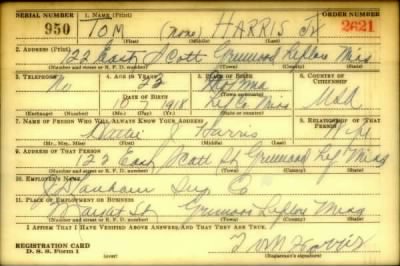 SERIAL NUMBER 1. NAME (Print) ORDER NUMBER
950 TOM (none) HARRIS Jr 2621
(First) (Middle) (Last)
2. ADDRESS (Print)
122 East Scott Greenwood Leflore Miss
(Number and street or R. F. D. number) (Town) (County) (State)
3. TELEPHONE 4. AGE IN YEARS 5. PLACE OF BIRTH 6. COUNTRY OF CITIZENSHIP
No 22
DATE OF BIRTH (Town or county)
10 7 1918 Lef Co Miss USA
(Mo.) (Day) (Yr.) (State or country)
7. NAME OF PERSON WHO WILL ALWAYS KNOW YOUR ADDRESS 8. RELATIONSHIP OF THAT PERSON
J Harris Wife
(Mr., Mrs., Miss) (First) (Middle) (Last)
9. ADDRESS OF THAT PERSON
122 East Scott St Greenwood Lef Miss
(Number and street or R. F. D. number) (Town) (County) (State)
10. EMPLOYER'S NAME
Co
11. PLACE OF EMPLOYMENT OR BUSINESS
Market St Greenwood Leflore Miss
(Number and street or R. F. D. number) (Town) (County) (State)
I AFFIRM THAT I HAVE VERIFIED ABOVE ANSWERS AND THAT THEY ARE TRUE.
REGISTRATION CARD
D. S. S. Form 1
Tom Harris
(Registrant's signature)